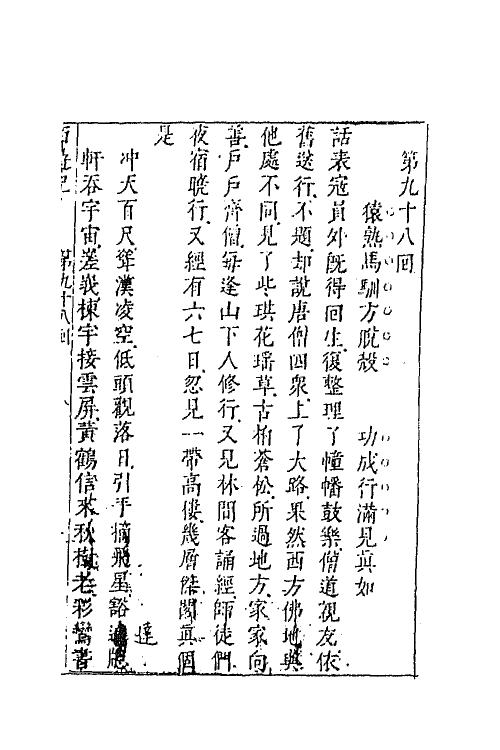 第九十八回
猿熟馬馴方脫殼　功成行滿見真如
話表寇員外既得回生復整理了幢幡鼓樂僧道親友依
舊送行不題却說唐僧四衆上了大路果然西方佛地與
他處不同見了些琪花瑶草古柏蒼松所過地方家家向
善戶戶齊僧每逢山下人修行又見林間客誦經師徒們
夜宿曉行又經有六七日忽見一帶高樓幾層傑閣真個
是
冲天百尺聳漢凌空低頭觀落日引手摘飛星豁達
軒吞宇宙嵳峩棟宇接雲屏黃鶴信來秋樹老彩鸞書
第九十八回